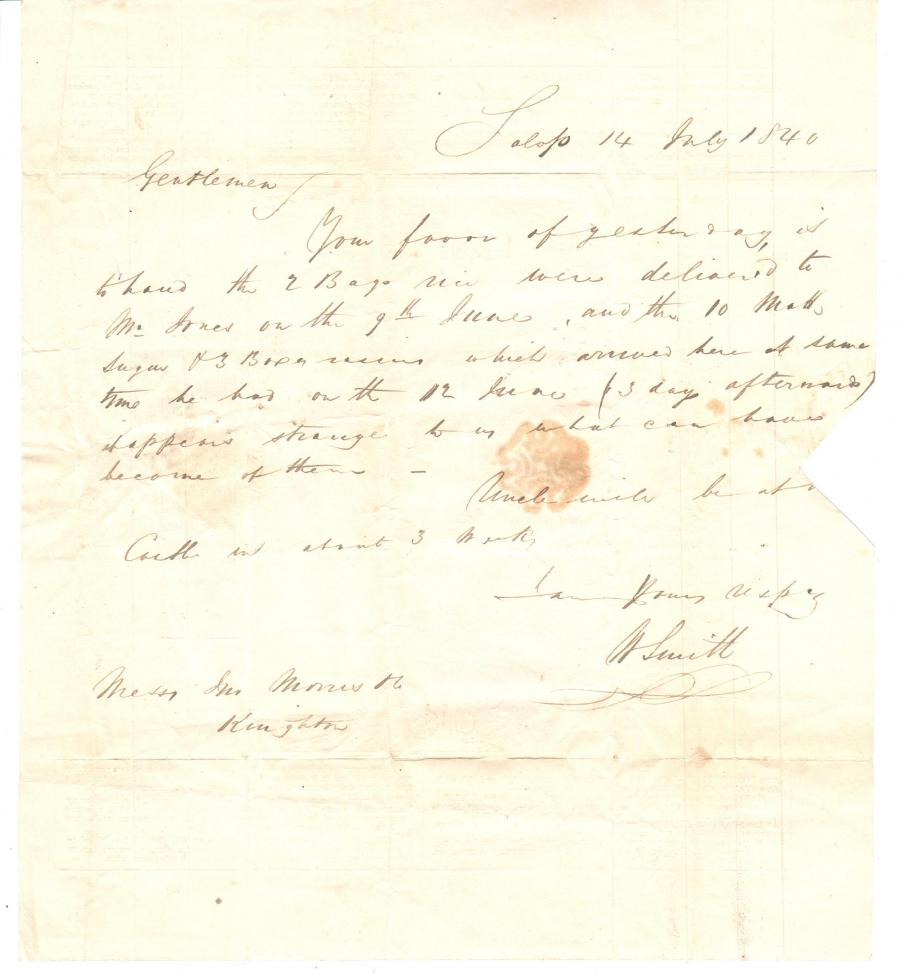 Salop 14 July 1840
Gentlemen
Your favor of yesterday, is
to hand the 2 Bags rice were deliver'd to
Mr Jones on the 9th June, and the 10 Matts
Sugar & 3 Boxes raisins which arrived here at same
time he had on the 12 June (3 days afterwards)
it appears strange to us what can have
become of them –
Uncle will be at
Castle in about 3 Weeks
I am Yours respy
W Smith
Messrs Jno Morris & Co
Knighton